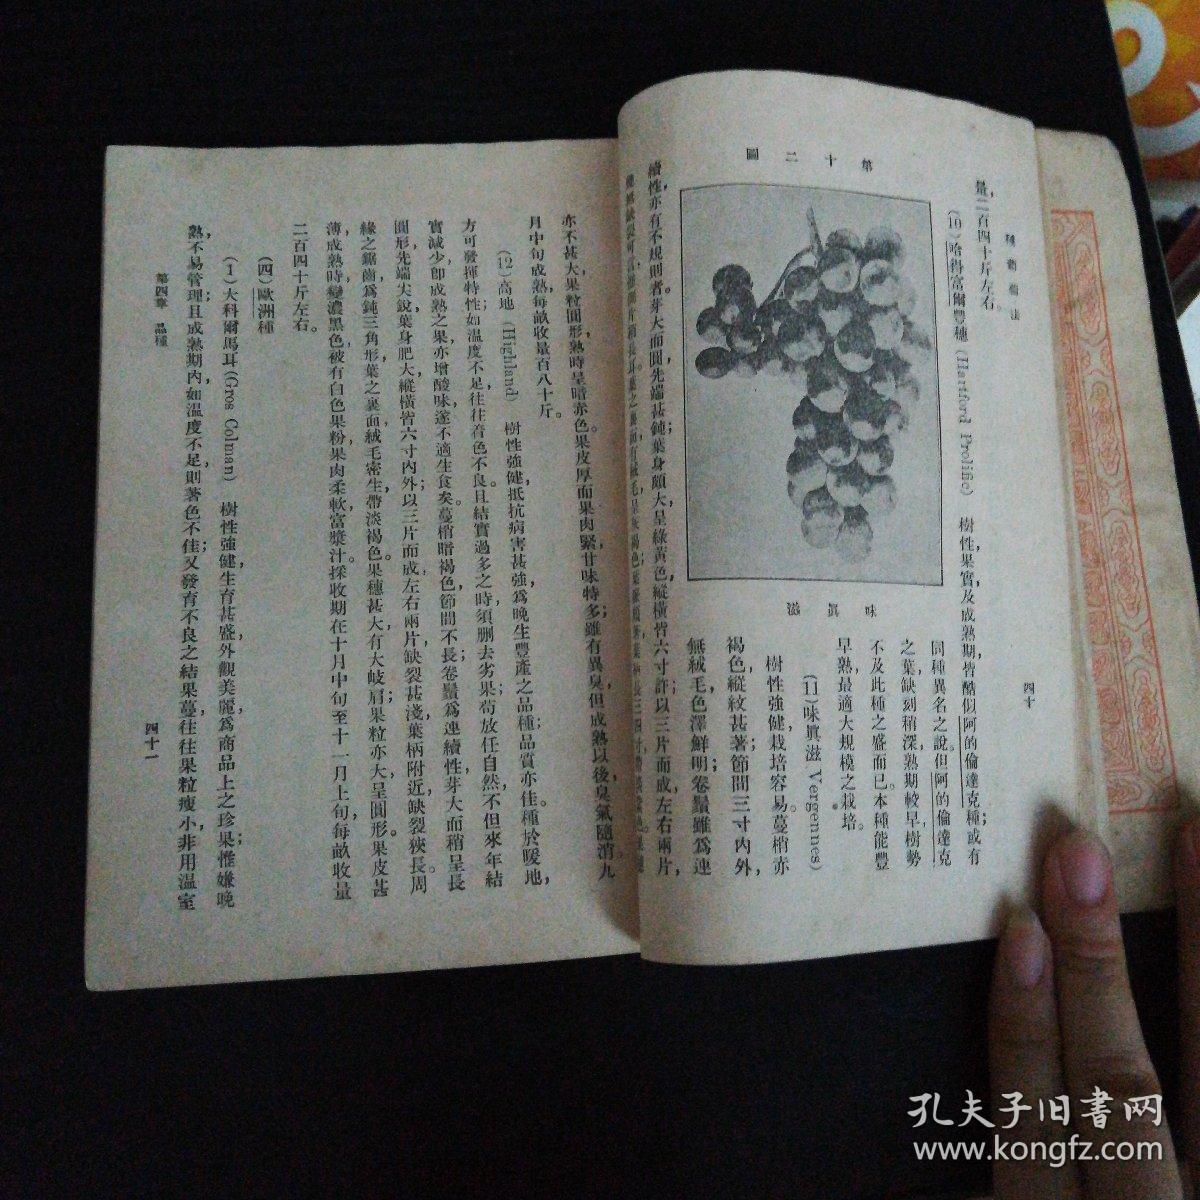 種葡萄法
四十
量二百四十斤左右。
(10)哈得富爾豐穗(Hartford Prolific) 樹性果實及成熟期皆酷似阿的倫達克種或有
同種異名之說。但阿的倫達克
之葉缺刻稍深熟期較早樹勢
不及此種之盛而已。本種能豐
早熟最適大規模之栽培。
(11)味眞滋 Vergennes)
樹性強健栽培容易。蔓梢赤
褐色縱紋甚著節間三寸內外,
無絨毛色澤鮮明卷鬚雖爲連
第十二圖
味眞滋
續性亦有不規則者芽大而圓先端甚鈍葉身頗大呈綠黃色縱橫皆六寸許以三片而成左右兩片,
亦不甚大果粒圓形熟時呈暗赤色。果皮厚而果肉緊甘味特多雖有異臭但成熟以後臭氣隨消九
月中旬成熟每畝收量百八十斤。
(12)高地(Highland) 樹性強健抵抗病害甚強爲晚生豐產之品種品質亦佳。種於暖地,
方可發揮特性如溫度不足往往着色不良。且結實過多之時須刪去劣果苟放任自然不但來年結
實減少即成熟之果亦增酸味遂不適生食矣。蔓梢暗褐色節間不長卷鬚爲連續性芽大而稍呈長
圓形先端尖銳葉身肥大縱橫皆六寸內外以三片而成左右兩片缺裂甚淺葉柄附近缺裂狹長。周
緣之鋸齒爲鈍三角形葉之裏面絨毛密生帶淡褐色。果穗甚大有大岐肩果粒亦大呈圓形。果皮甚
薄成熟時變濃黑色被有白色果粉果肉柔軟富漿汁採收期在十月中旬至十一月上旬每畝收量
二百四十斤左右。
(四)歐洲種
(1)大科爾馬耳(Gros Colman) 樹性強健生育甚盛外觀美麗爲商品上之珍果惟嫌晚
熟不易管理且成熟期內如溫度不足則著色不佳又發育不良之結果蔓往往果粒瘦小非用溫室
第四章 品種
四十一
孔夫子旧書网
www.kongfz.com